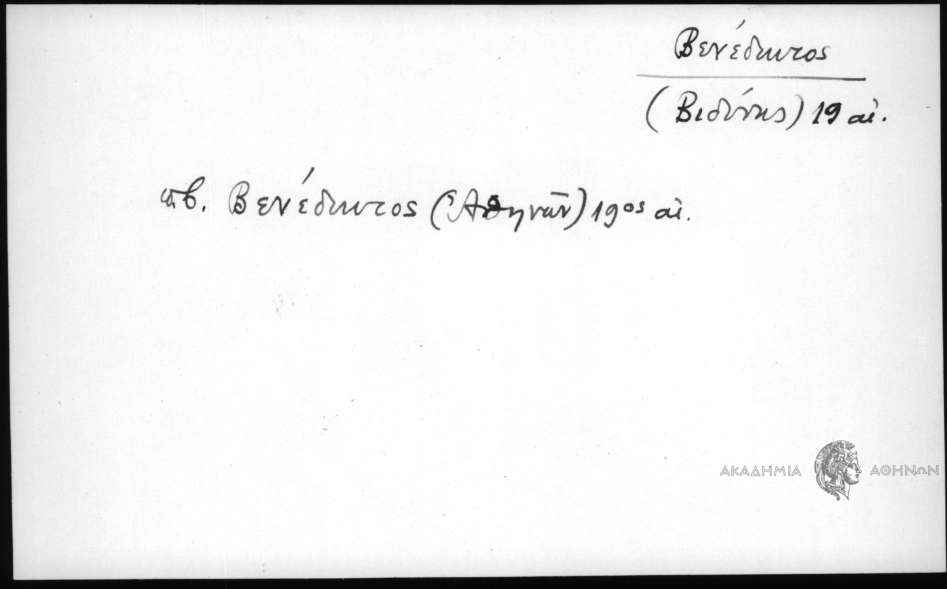 Βενέδικτος
(Βιδύνης) 19 αἰ.
πβ. Βενέδικτος (Ἀθηνῶν) 19ος αἰ.
ΑΚΑΔΗΜΙΑ ΑΘΗΝΩΝ